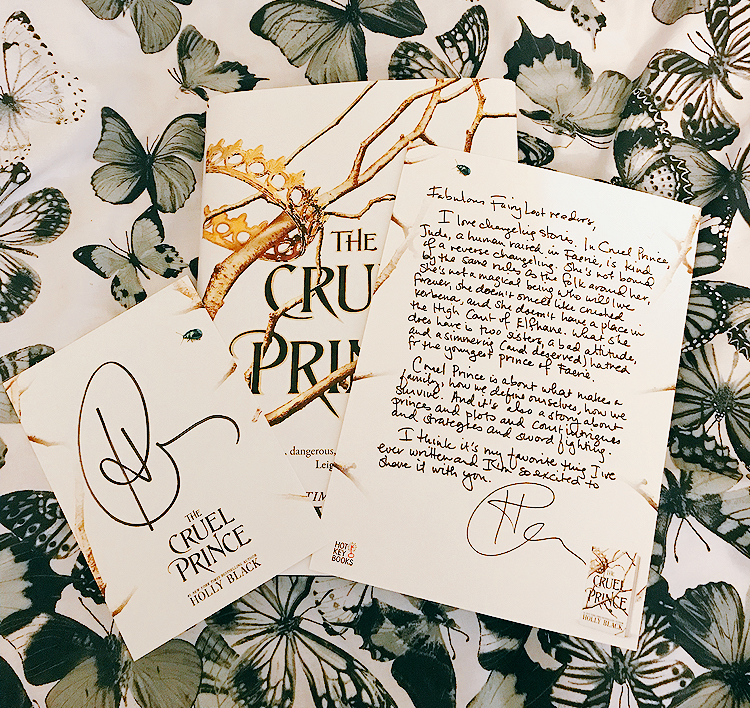 THE
CRU
PRIN
, dangerous,
Leig
TIM
Fabulous FairyLoot readers,
I love changeling stories. In Cruel Prince,
Jude, a human raised in Faerie, is kind
of a reverse changeling. She's not bound
by the same rules as the folk around her,
She's not a magical being who will live
forever, she doesn't smell like crushed
verbena, and she doesn't have a place in
the High Court of Elfhame. What she
does have is two sisters, a bad attitude,
and a simmering (and deserved) hatred
for the youngest prince of Faerie.
Cruel Prince is about what makes a
family, how we define ourselves, how we
survive. And it's also a story about
princes and plots and court intrigues
and strategies and sword fighting.
I think it's my favorite thing I've
ever written and I'm so excited to
share it with you.
HOT
KEY
BOOKS
THE
CRUEL
PRINCE
HOLLY BLACK
THE
CRUEL
PRINCE
HOLLY BLACK